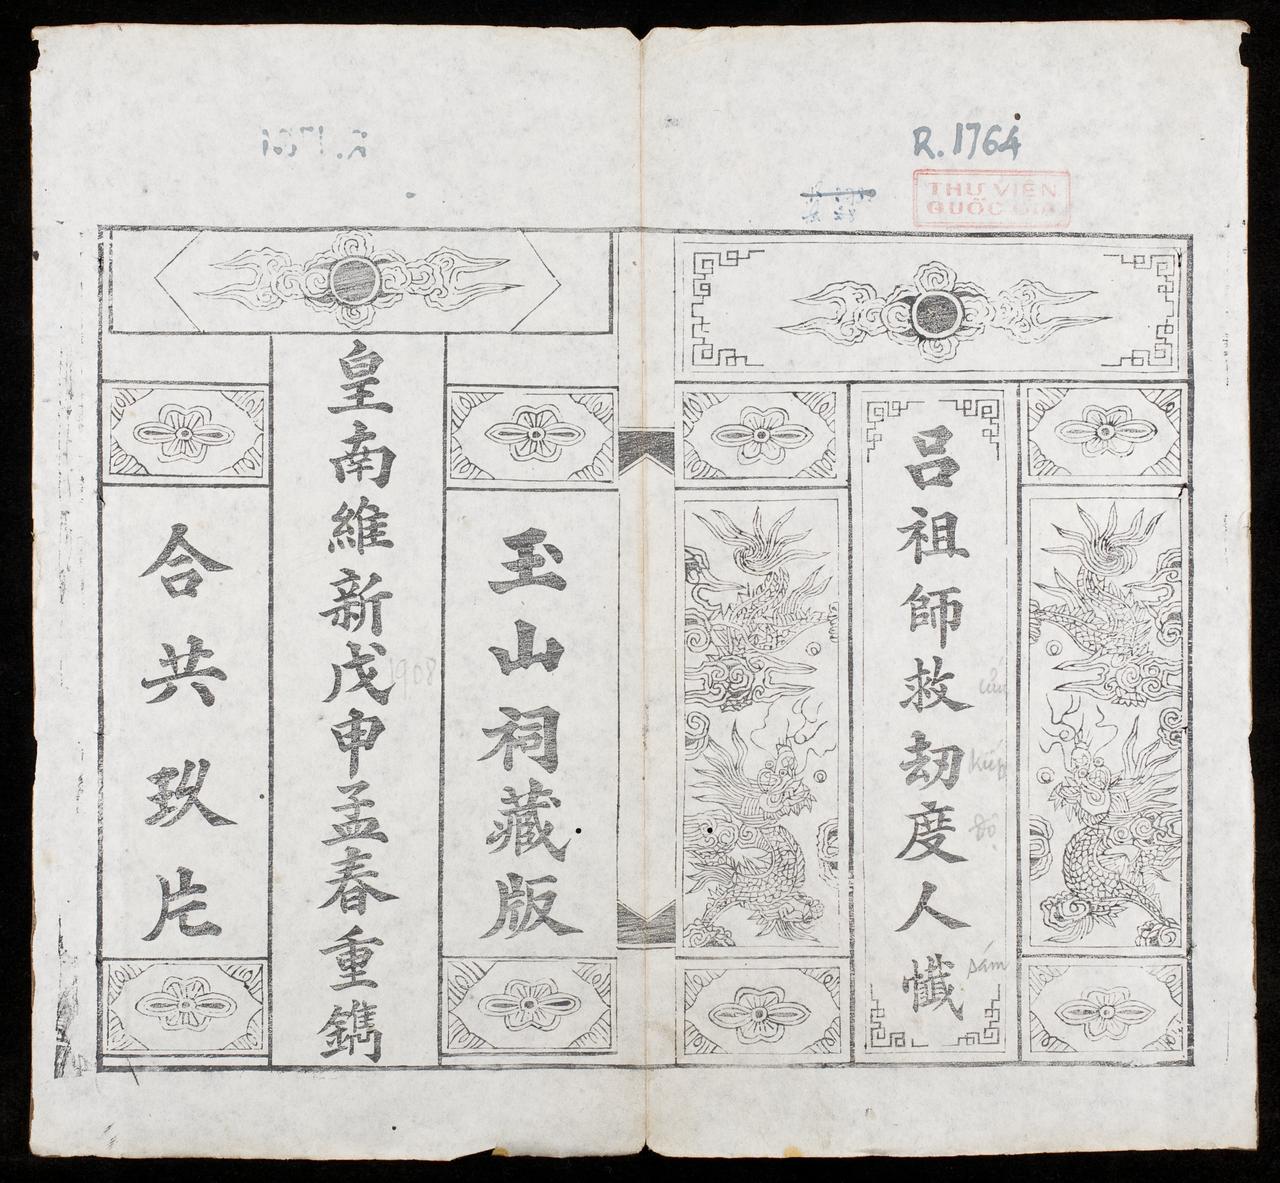 R.1764
THƯ VIỆN
QUỐC GIA
呂祖師救劫度人懺
Kiếp
độ
sám
皇南維新戊申孟春重鐫
1908
玉山祠藏版
合共玖片